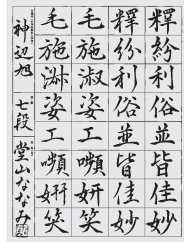 釋紛利俗並皆佳妙
釋紛利俗並皆佳妙
毛施淑姿工嚬妍笑
毛施淑姿工嚬妍笑
神辺旭 七段 堂山ななみ